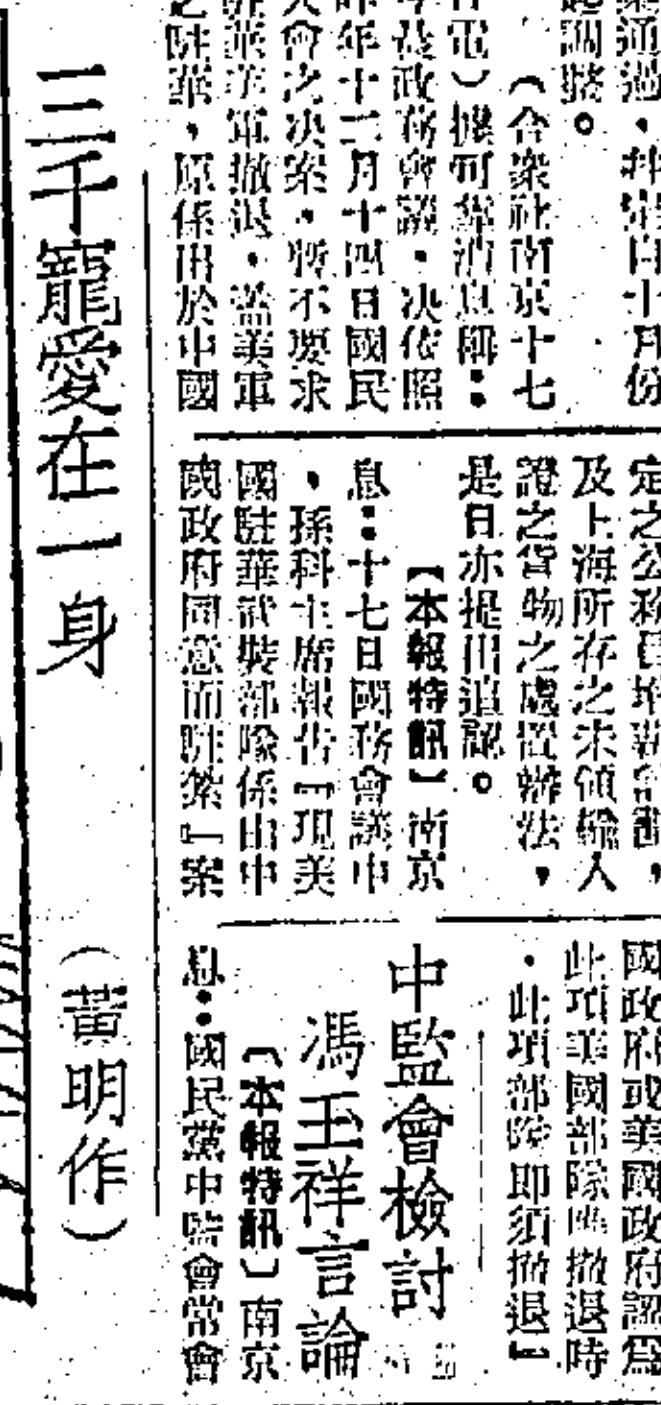 案通過,
十月份
起調整。
(合衆社南京十七
日電)據可靠消息稱:
政務會議,决依照
昨年十二月十四日國民
大會之决案,暫不要求
駐華美軍撤退,蓋美軍
之駐華,原係由於中國
定之公
及上海所存之未領輸入
證之貨物之處置辦法,
是日亦提出追認。
【本報特訊】南京
息:十七日國務會議中
,孫科主席報告『現美
國駐華武裝部隊係由中
國政府同意而駐紮』案
國政府或美國政府認爲
此項美國部隊應撤退時
,此項部隊即須撤退』
中監會檢討
馮玉祥言論
【本報特訊】南京
息:國民黨中監會常會
三千寵愛在一身
(黃明作)